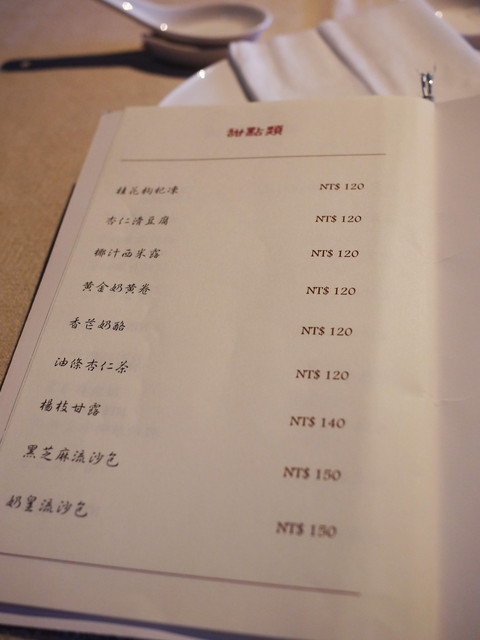 甜點類
桂花枸杞凍 NT$ 120
杏仁漬豆腐 NT$ 120
椰汁西米露 NT$ 120
黃金奶黃卷 NT$ 120
香芒奶酪 NT$ 120
油條杏仁茶 NT$ 120
楊枝甘露 NT$ 140
黑芝麻流沙包 NT$ 150
奶皇流沙包 NT$ 150